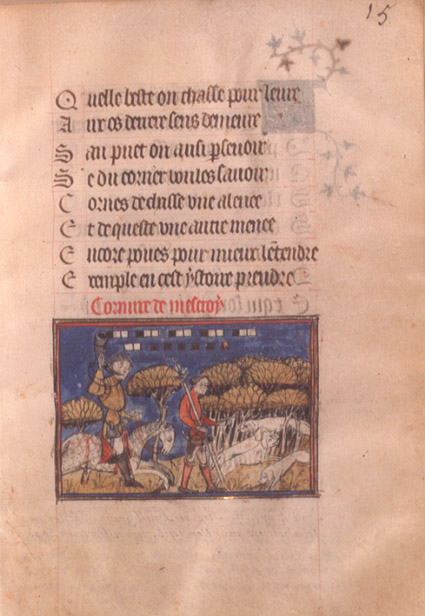 15
Quelle beste on chasse pour leure
Aux os deuere sens demeure
San puet on ausi perseuoir
Se du corner voules sauoir
Cornes de chasse vne alence
Et de queste vne autre menee
Encore poues pour mieux lentendre
Exemple en ceste ystoire prendre
Corniire de mescroy